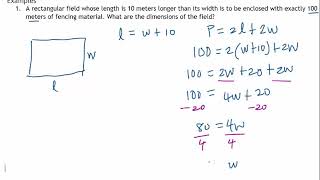 Examples
1. A rectangular field whose length is 10 meters longer than its width is to be enclosed with exactly 100
meters of fencing material. What are the dimensions of the field?
l = w + 10
P = 2l + 2w
w
l
100 = 2(w+10) + 2w
100 = 2w + 20 + 2w
100 = 4w + 20
-20 -20
80 = 4w
4 4
w